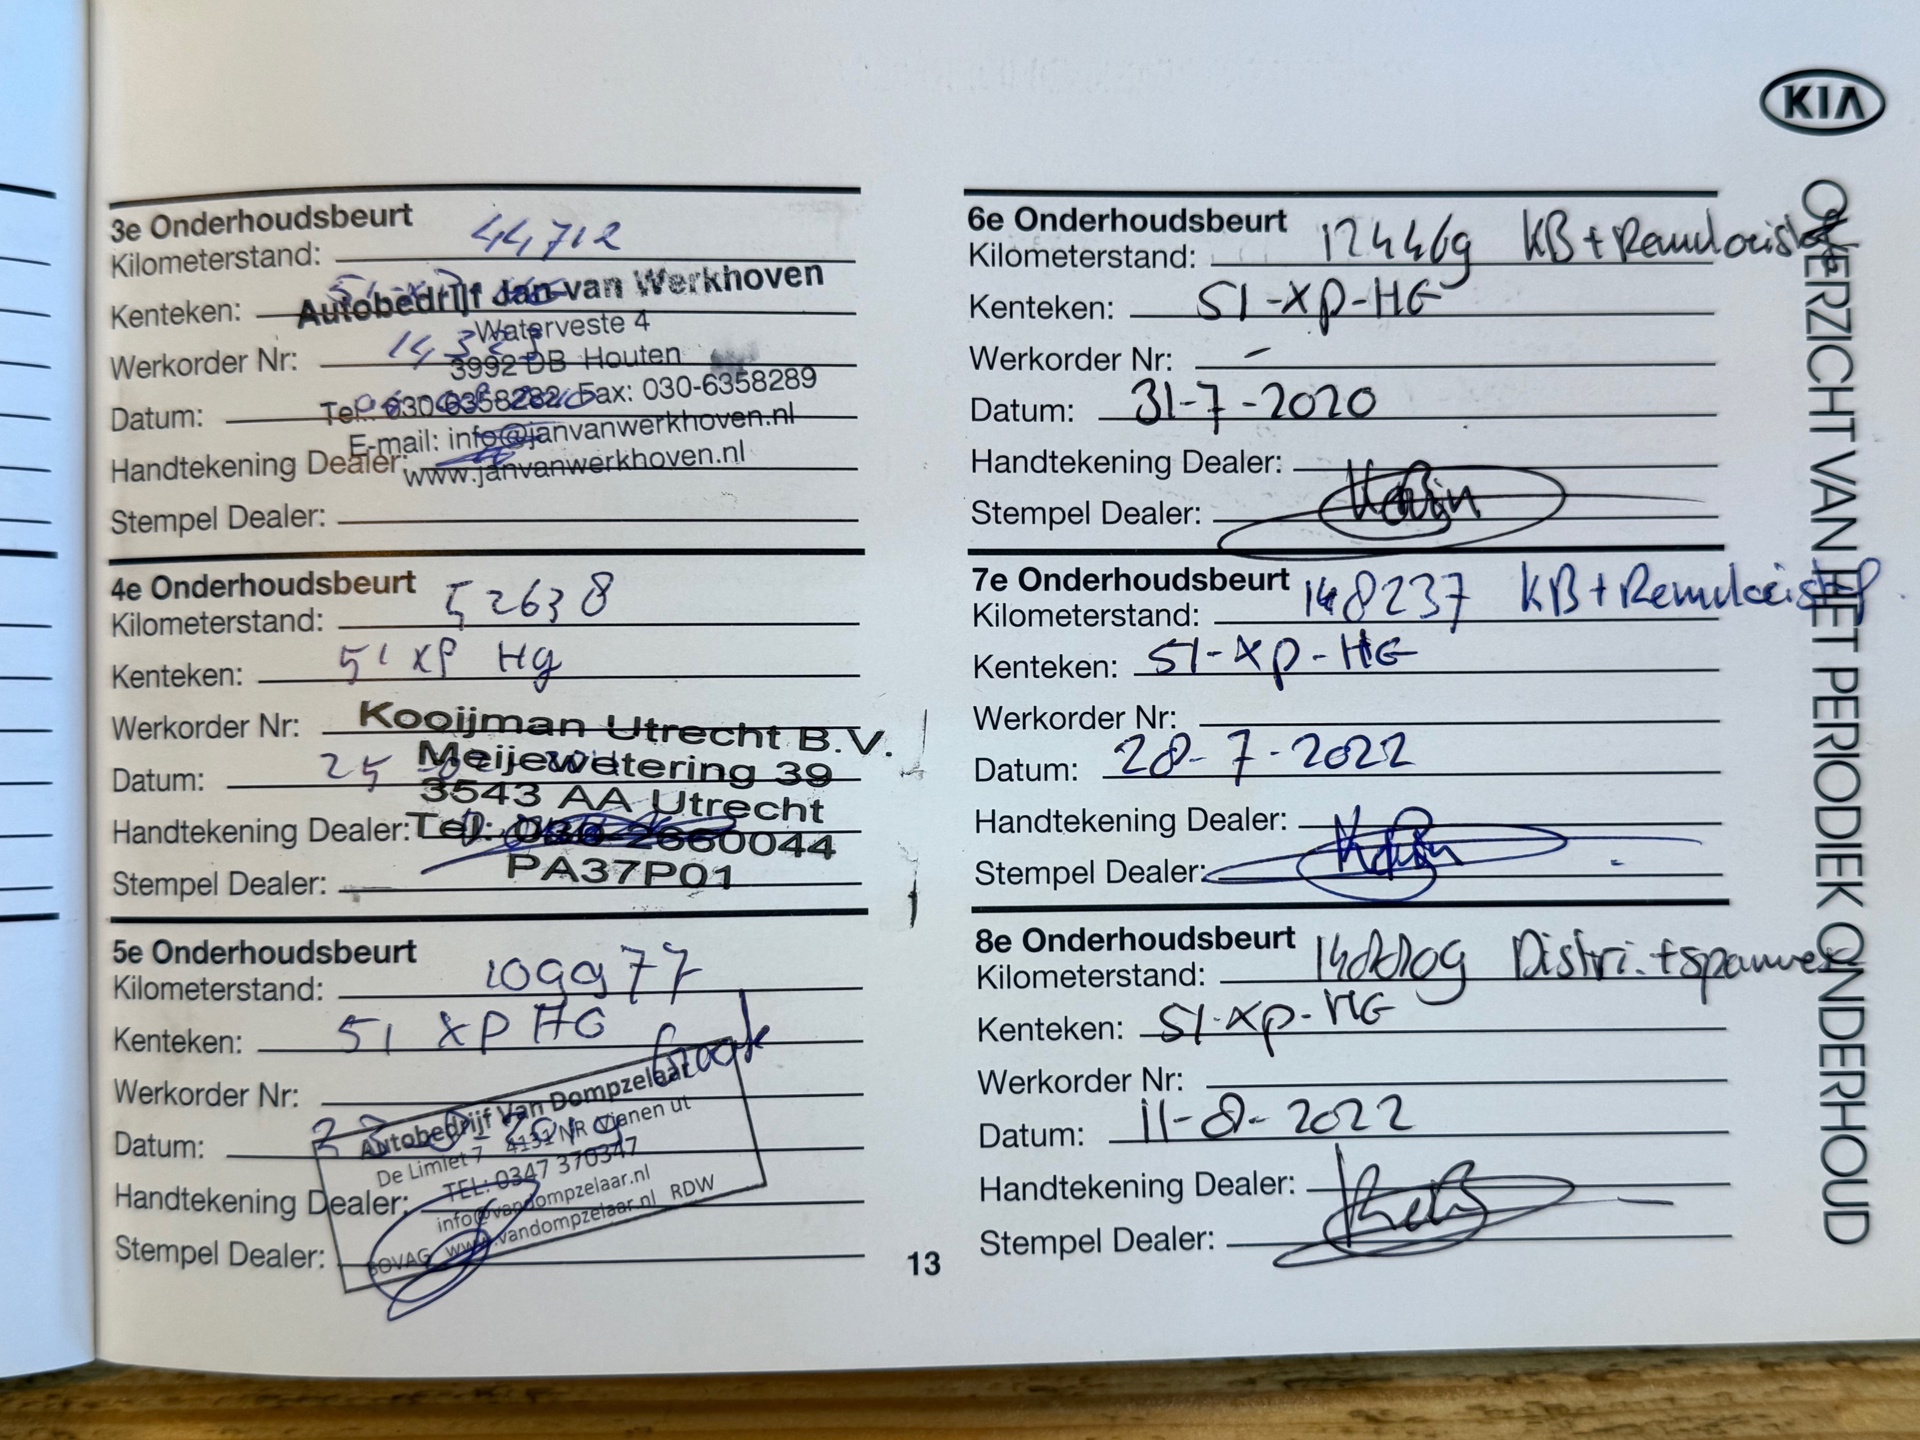 KIA
OVERZICHT VAN HET PERIODIEK ONDERHOUD
3e Onderhoudsbeurt
Kilometerstand: 44712
Kenteken:
Autobedrijf Jan van Werkhoven
Waterveste 4
Werkorder Nr:
3992 DB Houten
Tel: 030-6358282 Fax: 030-6358289
Datum:
E-mail: info@janvanwerkhoven.nl
Handtekening Dealer:
www.janvanwerkhoven.nl
Stempel Dealer:
4e Onderhoudsbeurt
Kilometerstand: 52638
Kenteken: 51 XP HG
Werkorder Nr:
Kooijman Utrecht B.V.
Meijewetering 39
Datum: 25
3543 AA Utrecht
Handtekening Dealer:
Tel: 030-2660044
PA37P01
Stempel Dealer:
5e Onderhoudsbeurt
Kilometerstand: 109977
Kenteken: 51 XP HG
Werkorder Nr:
Autobedrijf Van Dompzelaar
Datum:
De Limiet 7 4131 NR Vianen ut
TEL: 0347 370347
Handtekening Dealer:
info@vandompzelaar.nl
BOVAG www.vandompzelaar.nl RDW
Stempel Dealer:
6e Onderhoudsbeurt
Kilometerstand: 124469 KB +
Kenteken: 51-XP-HG
Werkorder Nr: -
Datum: 31-7-2020
Handtekening Dealer:
Stempel Dealer:
7e Onderhoudsbeurt
Kilometerstand: 148237 KB +
Kenteken: 51-XP-HG
Werkorder Nr:
Datum: 28-7-2022
Handtekening Dealer:
Stempel Dealer:
8e Onderhoudsbeurt
Kilometerstand:
Kenteken: 51-XP-HG
Werkorder Nr:
Datum: 11-8-2022
Handtekening Dealer:
Stempel Dealer:
13